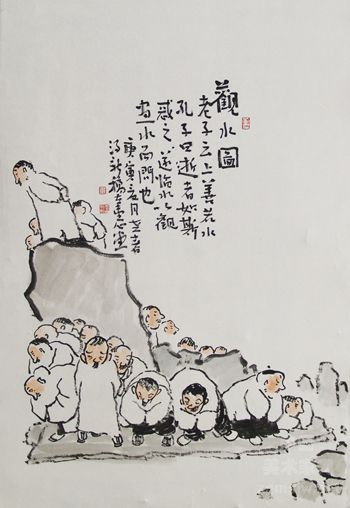 觀水圖
老子云上善若水
孔子曰逝者如斯
感之遂临水觀
画水而問也
庚寅